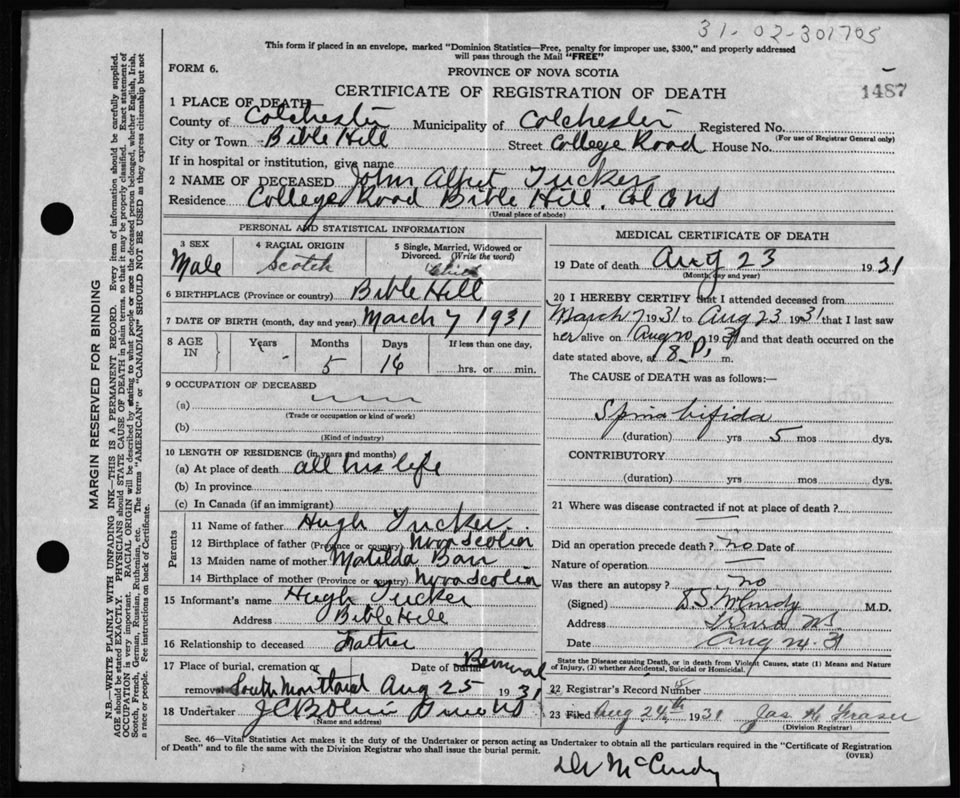 31-02-301705
This form if placed in an envelope, marked "Dominion Statistics—Free, penalty for improper use, $300," and properly addressed
will pass through the Mail "FREE"
FORM 6.
PROVINCE OF NOVA SCOTIA
CERTIFICATE OF REGISTRATION OF DEATH
1487
1 PLACE OF DEATH—
County of Colchester Municipality of Colchester Registered No.
(For use of Registrar General only)
City or Town Bible Hill Street College Road House No.
If in hospital or institution, give name
2 NAME OF DECEASED John Albert Tucker
Residence College Road Bible Hill. Col Co NS
(Usual place of abode)
PERSONAL AND STATISTICAL INFORMATION
3 SEX
Male
4 RACIAL ORIGIN
Scotch
5 Single, Married, Widowed or
Divorced. (Write the word)
6 BIRTHPLACE (Province or country) Bible Hill
7 DATE OF BIRTH (month, day and year) March 7 1931
8 AGE IN
Years Months Days If less than one day,
- 5 16 hrs. or min.
9 OCCUPATION OF DECEASED
(a)
(Trade or occupation or kind of work)
(b)
(Kind of industry)
10 LENGTH OF RESIDENCE (in years and months)
(a) At place of death all his life
(b) In province
(c) In Canada (if an immigrant)
Parents
11 Name of father Hugh Tucker
12 Birthplace of father (Province or country) Nova Scotia
13 Maiden name of mother Matilda Barr
14 Birthplace of mother (Province or country) Nova Scotia
15 Informant's name Hugh Tucker
Address Bible Hill
16 Relationship to deceased Father
17 Place of burial, cremation or Date of burial Removal
removal South Maitland Aug 25 1931
18 Undertaker
(Name and address)
MEDICAL CERTIFICATE OF DEATH
19 Date of death Aug 23 1931
(Month, day and year)
20 I HEREBY CERTIFY that I attended deceased from
March 7 1931 to Aug 23 1931 that I last saw
her alive on Aug 20 1931 and that death occurred on the
date stated above, at 8 P. m.
The CAUSE of DEATH was as follows:—
Spina bifida
(duration) yrs 5 mos dys.
CONTRIBUTORY
(duration) yrs mos dys.
21 Where was disease contracted if not at place of death?
Did an operation precede death? no Date of
Nature of operation
Was there an autopsy? no
(Signed) M.D.
Address Truro NS.
Date Aug 24 31
State the Disease causing Death, or in death from Violent Causes, state (1) Means and Nature
of Injury, (2) whether Accidental, Suicidal or Homicidal.
22 Registrar's Record Number
23 Filed Aug 24th 1931 Jas H Fraser
(Division Registrar)
Sec. 46—Vital Statistics Act makes it the duty of the Undertaker or person acting as Undertaker to obtain all the particulars required in the "Certificate of Registration
of Death" and to file the same with the Division Registrar who shall issue the burial permit.
(OVER)
Dr McCurdy
MARGIN RESERVED FOR BINDING
N.B.—WRITE PLAINLY WITH UNFADING INK—THIS IS A PERMANENT RECORD. Every item of information should be carefully supplied.
AGE should be stated EXACTLY. PHYSICIANS should STATE CAUSE OF DEATH in plain terms, so that it may be properly classified. Exact statement of
OCCUPATION is very important. RACIAL ORIGIN will be described by stating to what people or race the deceased person belonged, whether English, Irish,
Scotch, French, German, Russian, Ruthenian, etc. The terms "AMERICAN" or "CANADIAN" SHOULD NOT BE USED as they express citizenship but not
a race or people. Fee instructions on back of Certificate.